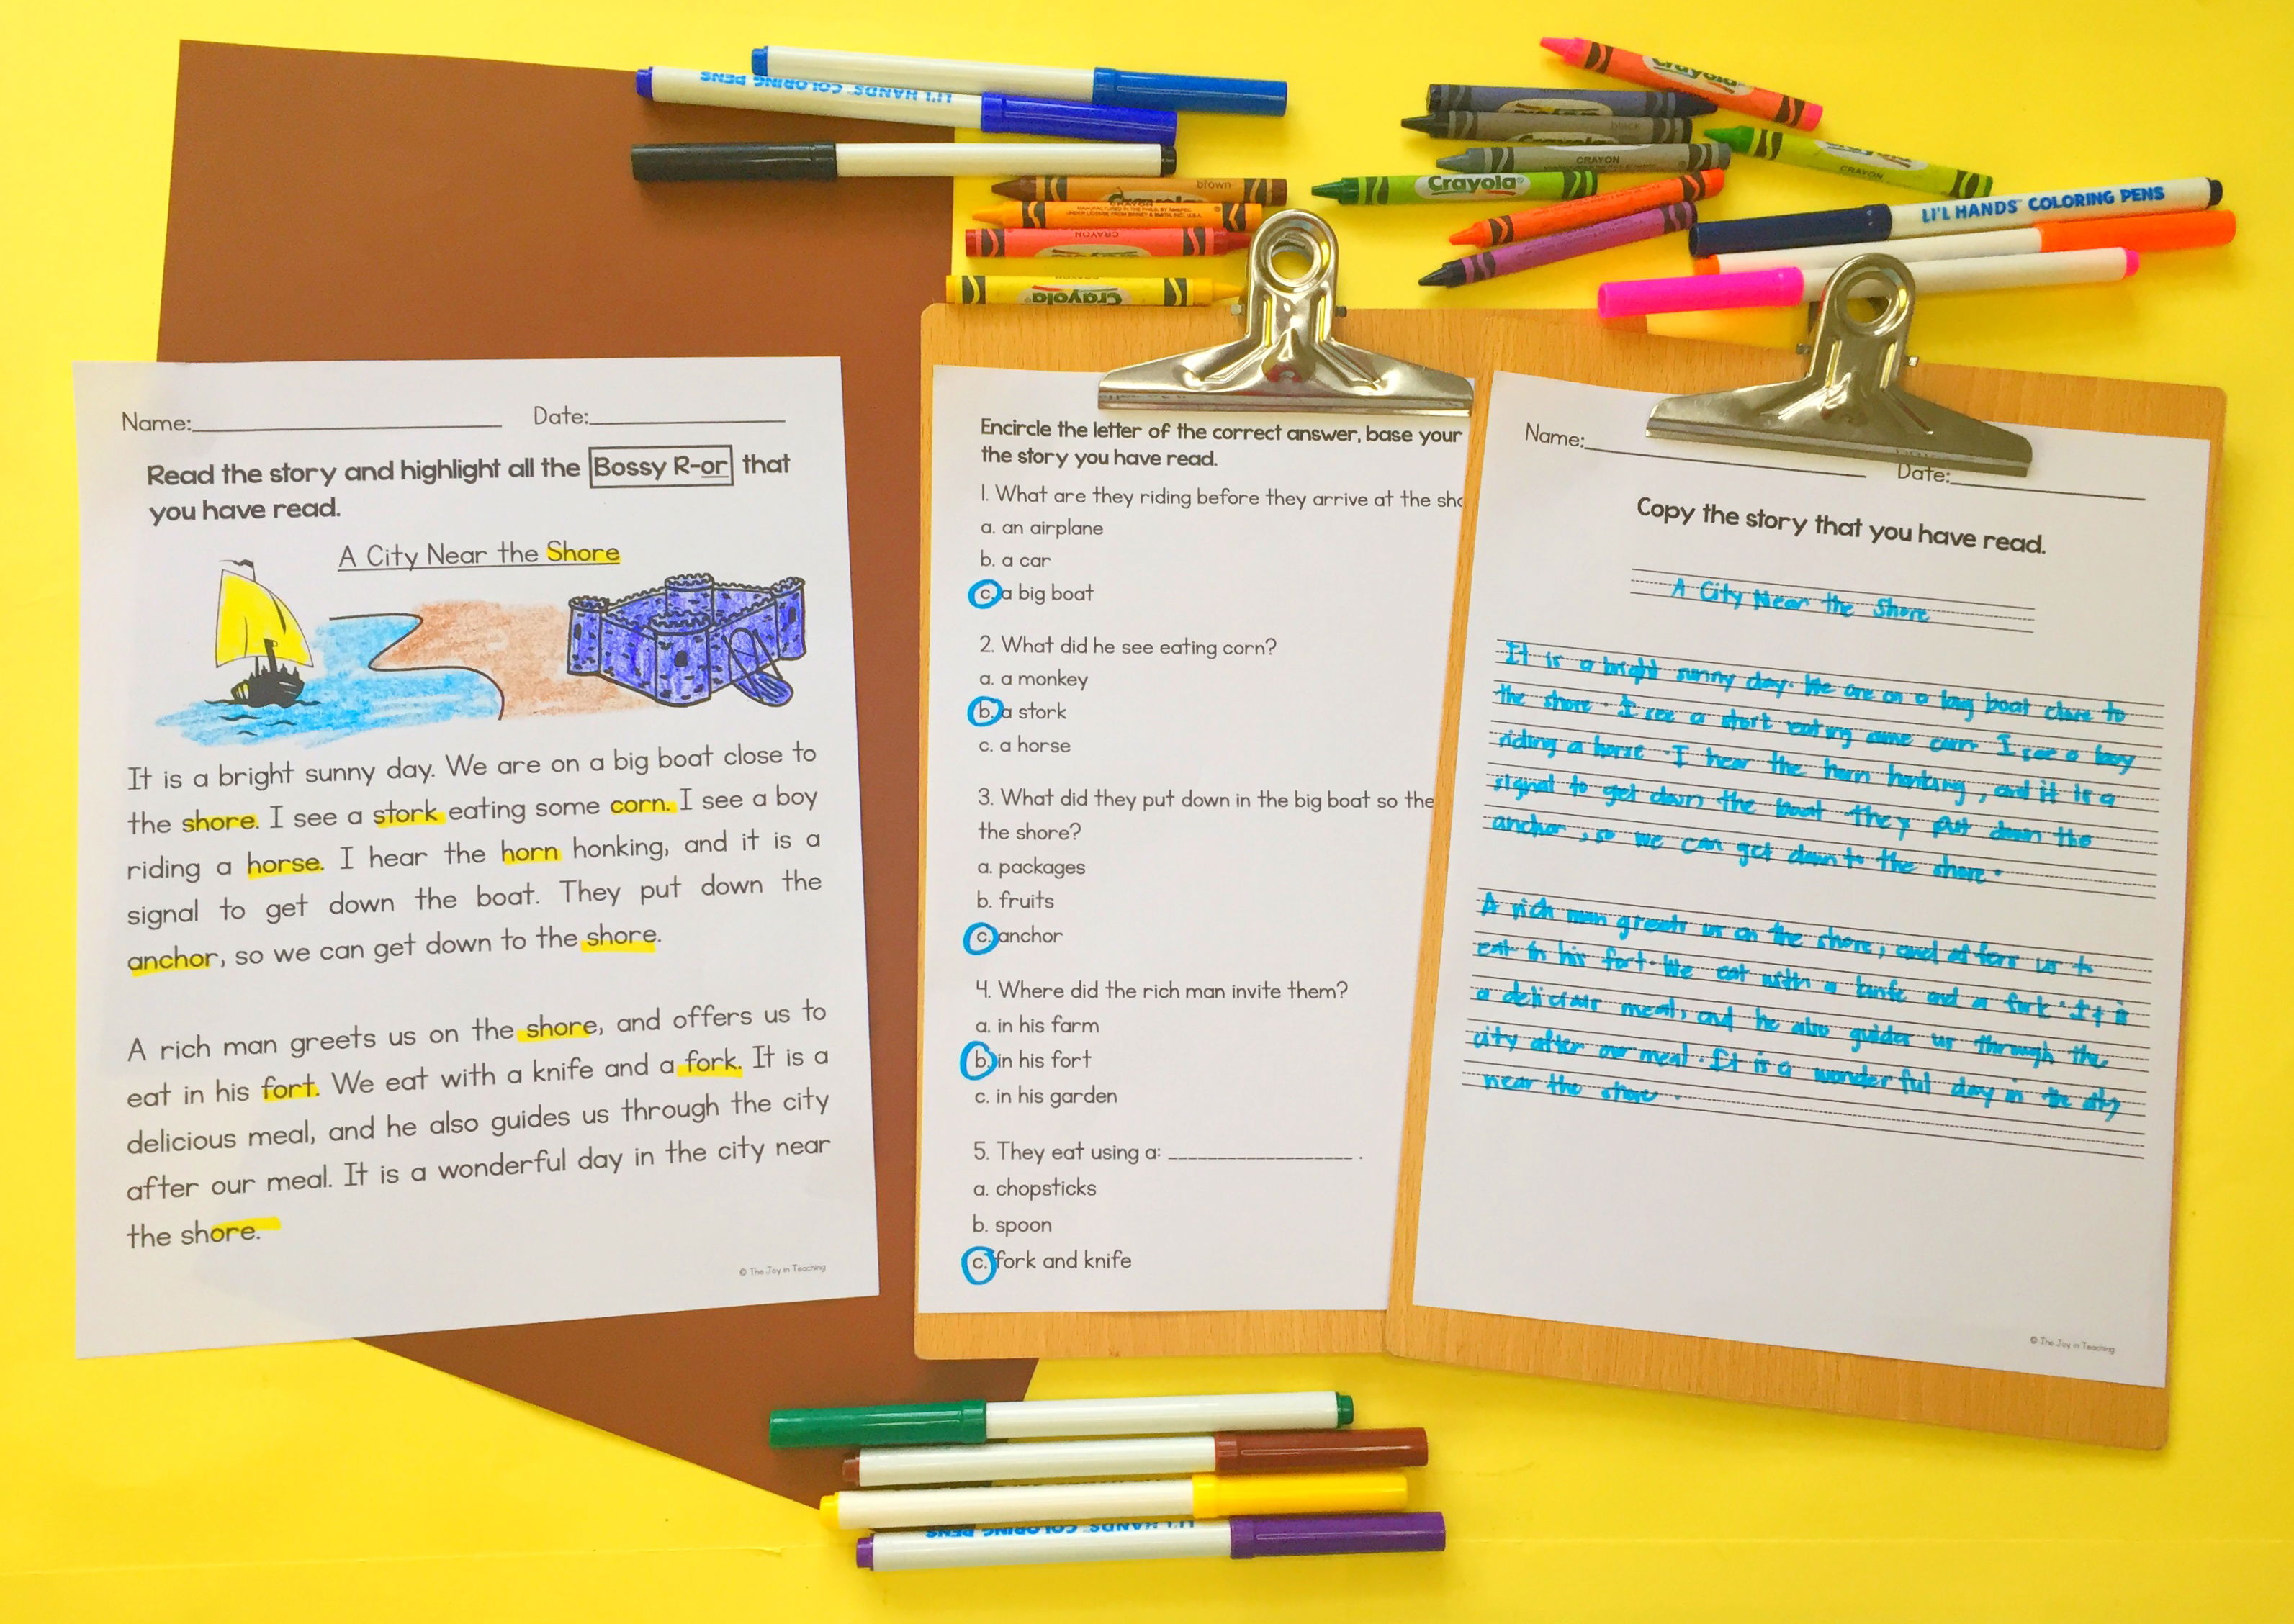 LI'L HANDS COLORING PENS
Crayola
brown
CRAYON
MANUFACTURED IN THE PHILS. BY
UNDER LICENSE FROM BINNEY & SMITH, INC., U.S.A.
CRAYON
Crayola
Crayola
black
Crayola
CRAYON
Crayola
CRAYON
LI'L HANDS™ COLORING PENS
Name: Date:
Read the story and highlight all the Bossy R-or that
you have read.
A City Near the Shore
It is a bright sunny day. We are on a big boat close to
the shore. I see a stork eating some corn. I see a boy
riding a horse. I hear the horn honking, and it is a
signal to get down the boat. They put down the
anchor, so we can get down to the shore.
A rich man greets us on the shore, and offers us to
eat in his fort. We eat with a knife and a fork. It is a
delicious meal, and he also guides us through the city
after our meal. It is a wonderful day in the city near
the shore.
© The Joy in Teaching
Encircle the letter of the correct answer, base your
the story you have read.
1. What are they riding before they arrive at the sho
a. an airplane
b. a car
c. a big boat
2. What did he see eating corn?
a. a monkey
b. a stork
c. a horse
3. What did they put down in the big boat so the
the shore?
a. packages
b. fruits
c. anchor
4. Where did the rich man invite them?
a. in his farm
b. in his fort
c. in his garden
5. They eat using a: ____________________ .
a. chopsticks
b. spoon
c. fork and knife
Name: Date:
Copy the story that you have read.
A City Near the Shore
It is a bright sunny day. We are on a big boat close to
the shore. I see a stork eating some corn I see a boy
riding a horse. I hear the horn honking, and it is a
signal to get down the boat. they put down the
anchor, so we can get down to the shore.
A rich man greets us on the shore, and offers us to
eat in his fort. We eat with a knife and a fork. It is
a delicious meal, and he also guides us through the
city after our meal. It is a wonderful day in the city
near the shore.
© The Joy in Teaching
LI'L HANDS COLORING PENS